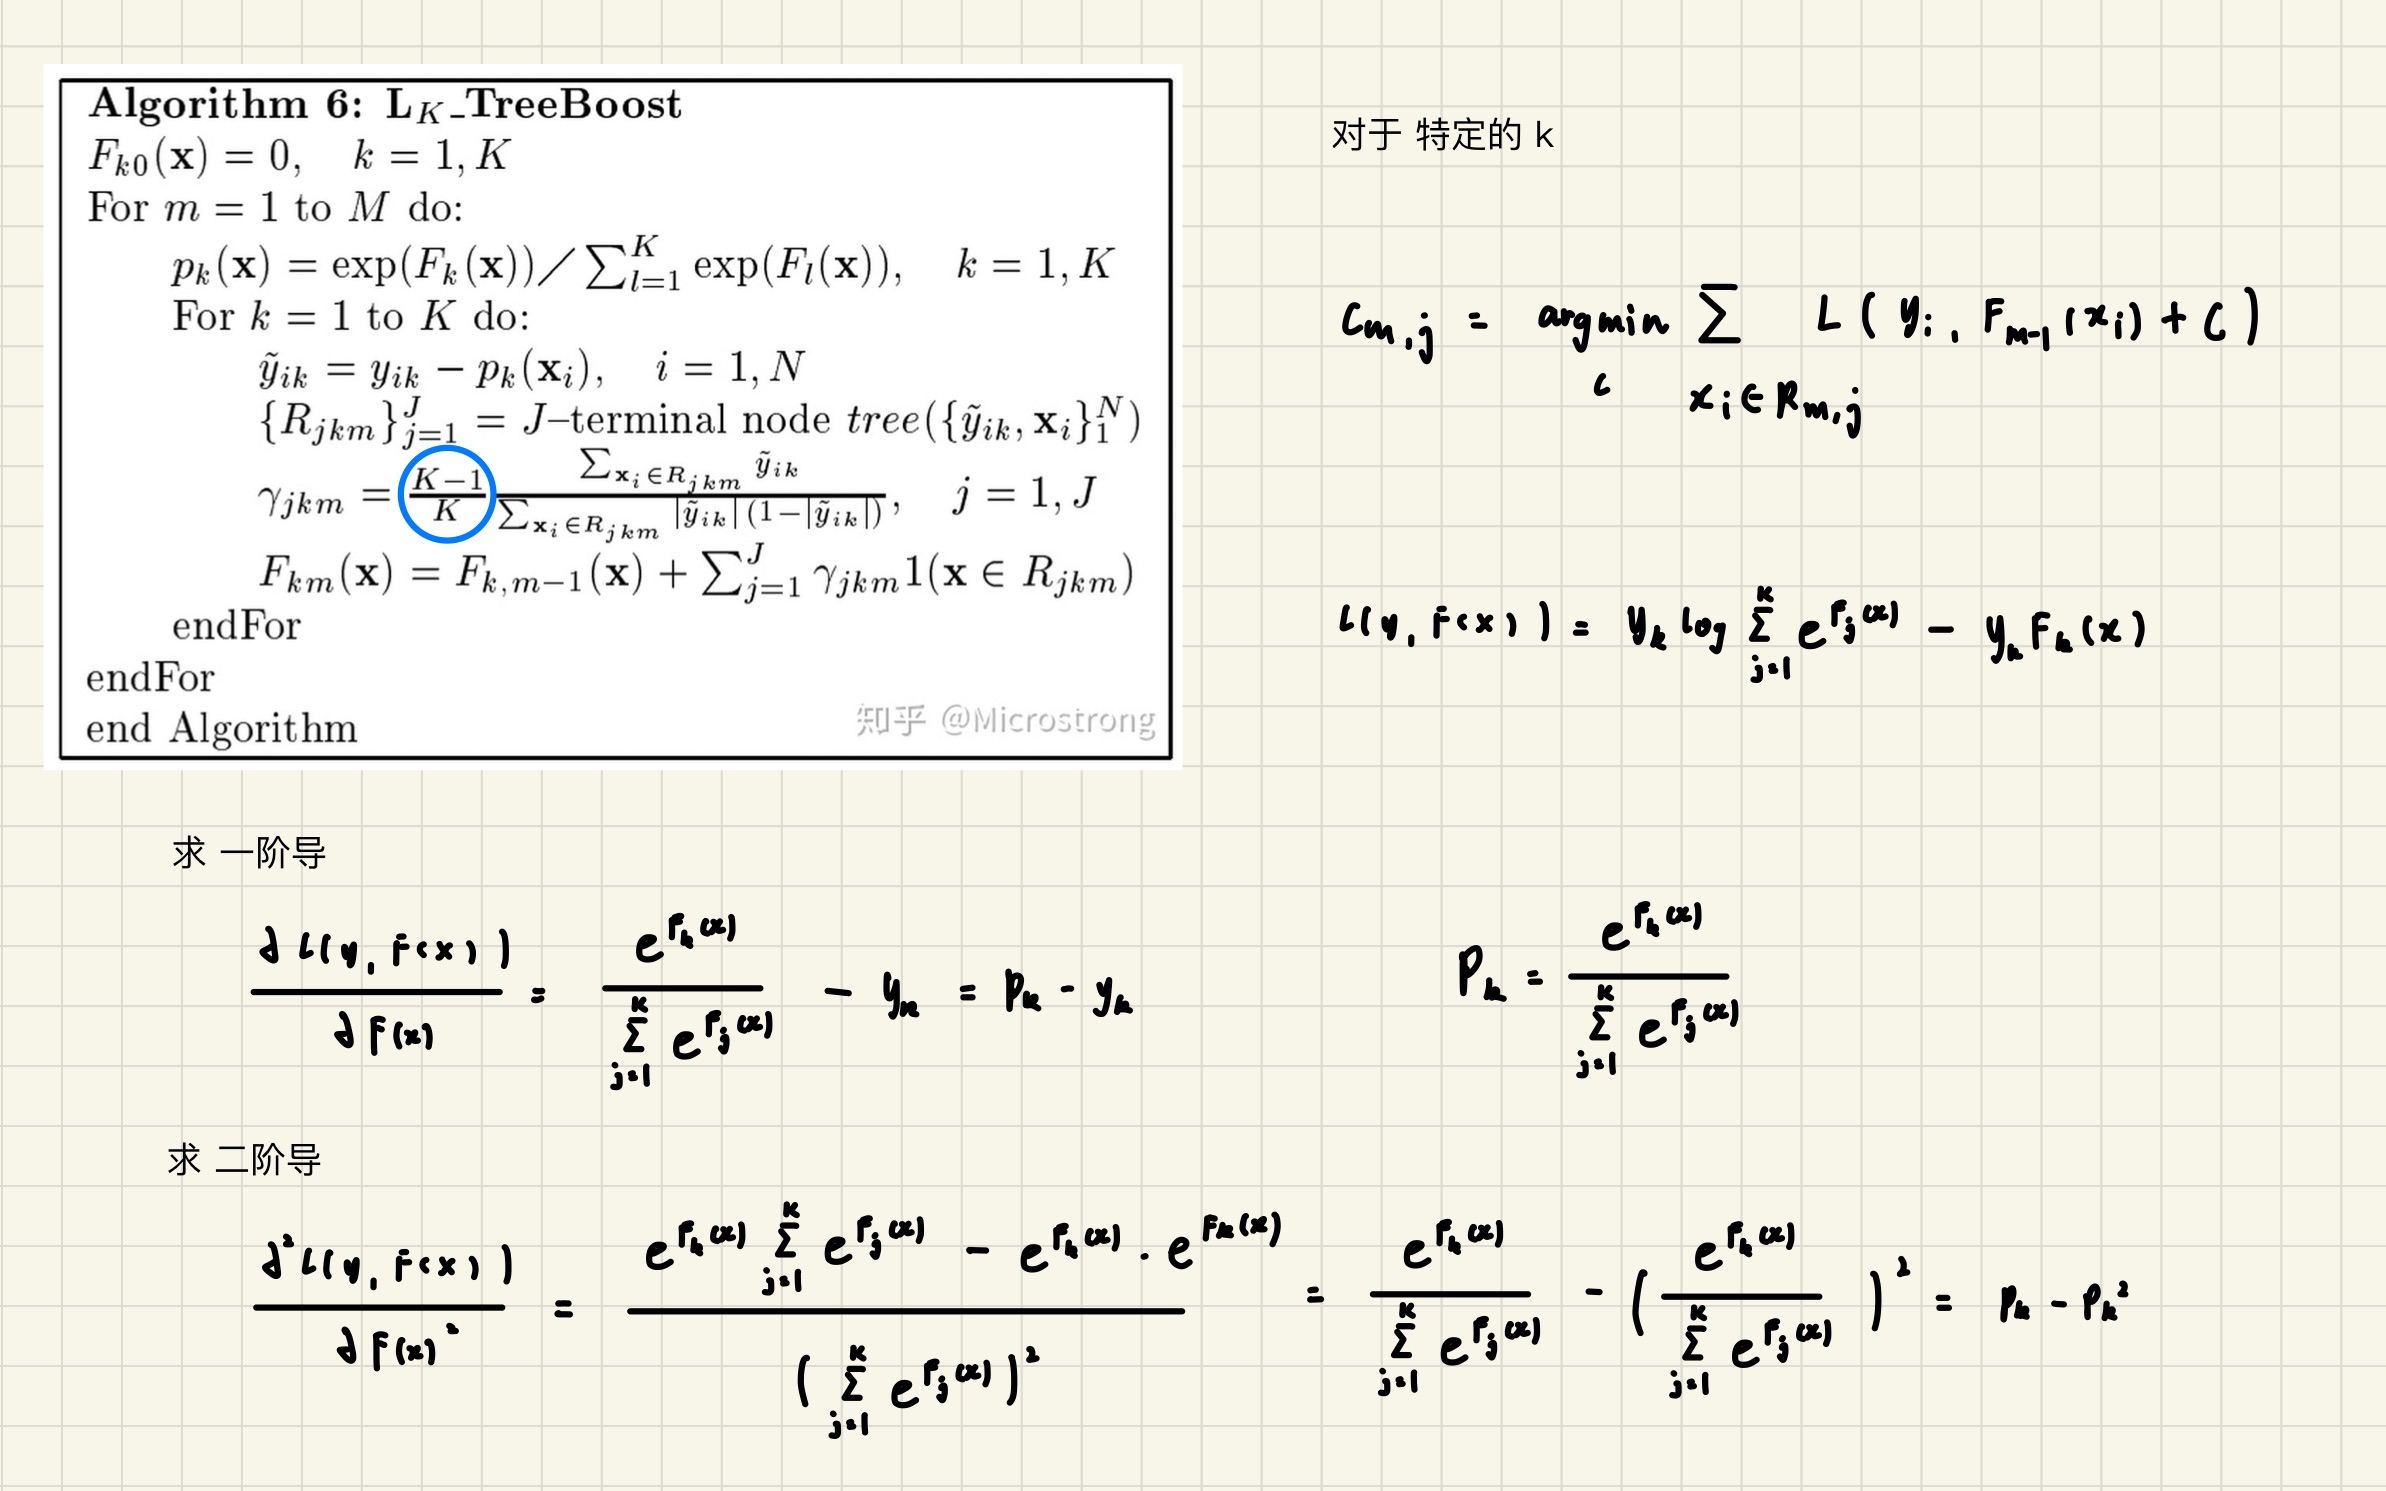 Algorithm 6: L_K_TreeBoost
F_{k0}(x) = 0, k = 1, K
For m = 1 to M do:
p_k(x) = exp(F_k(x)) / ∑_{l=1}^{K} exp(F_l(x)), k = 1, K
For k = 1 to K do:
ỹ_{ik} = y_{ik} − p_k(x_i), i = 1, N
{R_{jkm}}_{j=1}^{J} = J–terminal node tree({ỹ_{ik}, x_i}_1^N)
γ_{jkm} = \frac{K−1}{K} \frac{∑_{x_i∈R_{jkm}} ỹ_{ik}}{∑_{x_i∈R_{jkm}} |ỹ_{ik}|(1−|ỹ_{ik}|)}, j = 1, J
F_{km}(x) = F_{k,m−1}(x) + ∑_{j=1}^{J} γ_{jkm}1(x ∈ R_{jkm})
endFor
endFor
end Algorithm
知乎 @Microstrong
对于 特定的 k
C_{m,j} = argmin_c ∑_{x_i∈R_{m,j}} L(y_i, F_{m-1}(x_i) + C)
L(y, F(x)) = y_k log ∑_{j=1}^{K} e^{F_j(x)} − y_k F_k(x)
求 一阶导
\frac{∂L(y, F(x))}{∂F(x)} = \frac{e^{F_k(x)}}{∑_{j=1}^{K} e^{F_j(x)}} − y_k = p_k − y_k
P_k = \frac{e^{F_k(x)}}{∑_{j=1}^{K} e^{F_j(x)}}
求 二阶导
\frac{∂^2 L(y, F(x))}{∂F(x)^2} = \frac{e^{F_k(x)} ∑_{j=1}^{K} e^{F_j(x)} − e^{F_k(x)} · e^{F_k(x)}}{(∑_{j=1}^{K} e^{F_j(x)})^2} = \frac{e^{F_k(x)}}{∑_{j=1}^{K} e^{F_j(x)}} − (\frac{e^{F_k(x)}}{∑_{j=1}^{K} e^{F_j(x)}})^2 = p_k − p_k^2